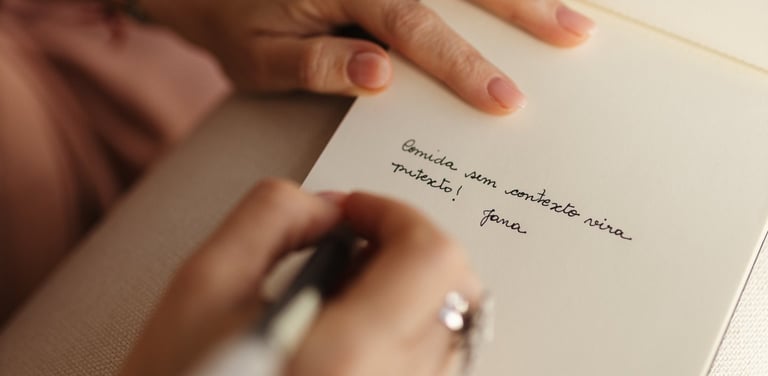 Comida sem contexto vira
pretexto!
Jana